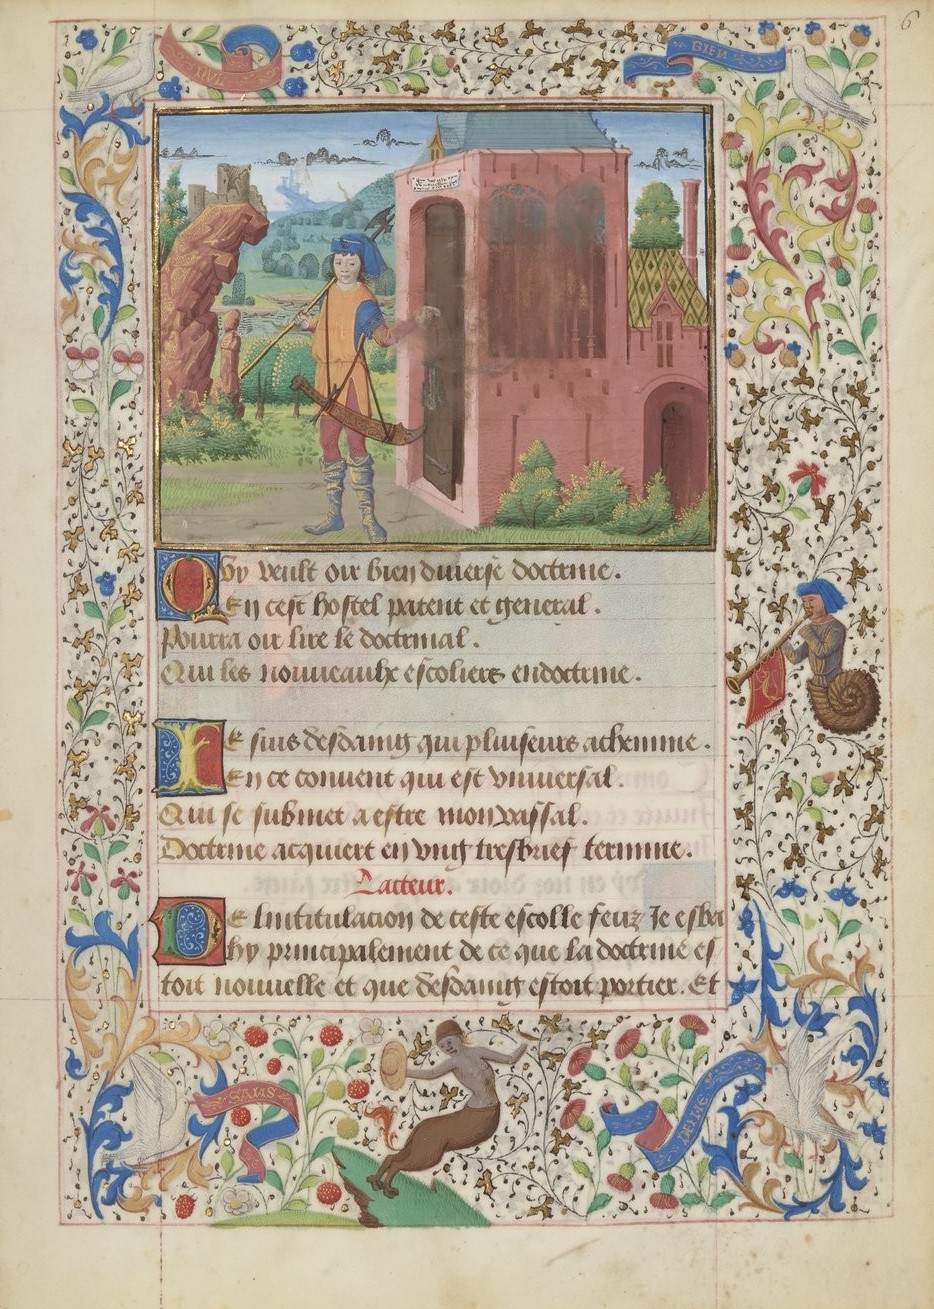 6
NVL
BIEN
Qvy veult oir bien diuerse doctrine.
En cest hostel patent et general.
Pourra oir lire le doctrinal.
Qui les nouueaulx escoliers endoctrine.
Ie suis desdaing qui pluiseurs achemine.
En ce conuent qui est vniuersal.
Qui se submet a estre mon vassal.
Doctrine acquiert en vng tresbrief termine.
Lacteur.
De lintitulacion de ceste escolle feuz Ie esba
hy principalement de ce que la doctrine es
toit nouuelle et que desdaing estoit portier. Et
SANS
PEINE